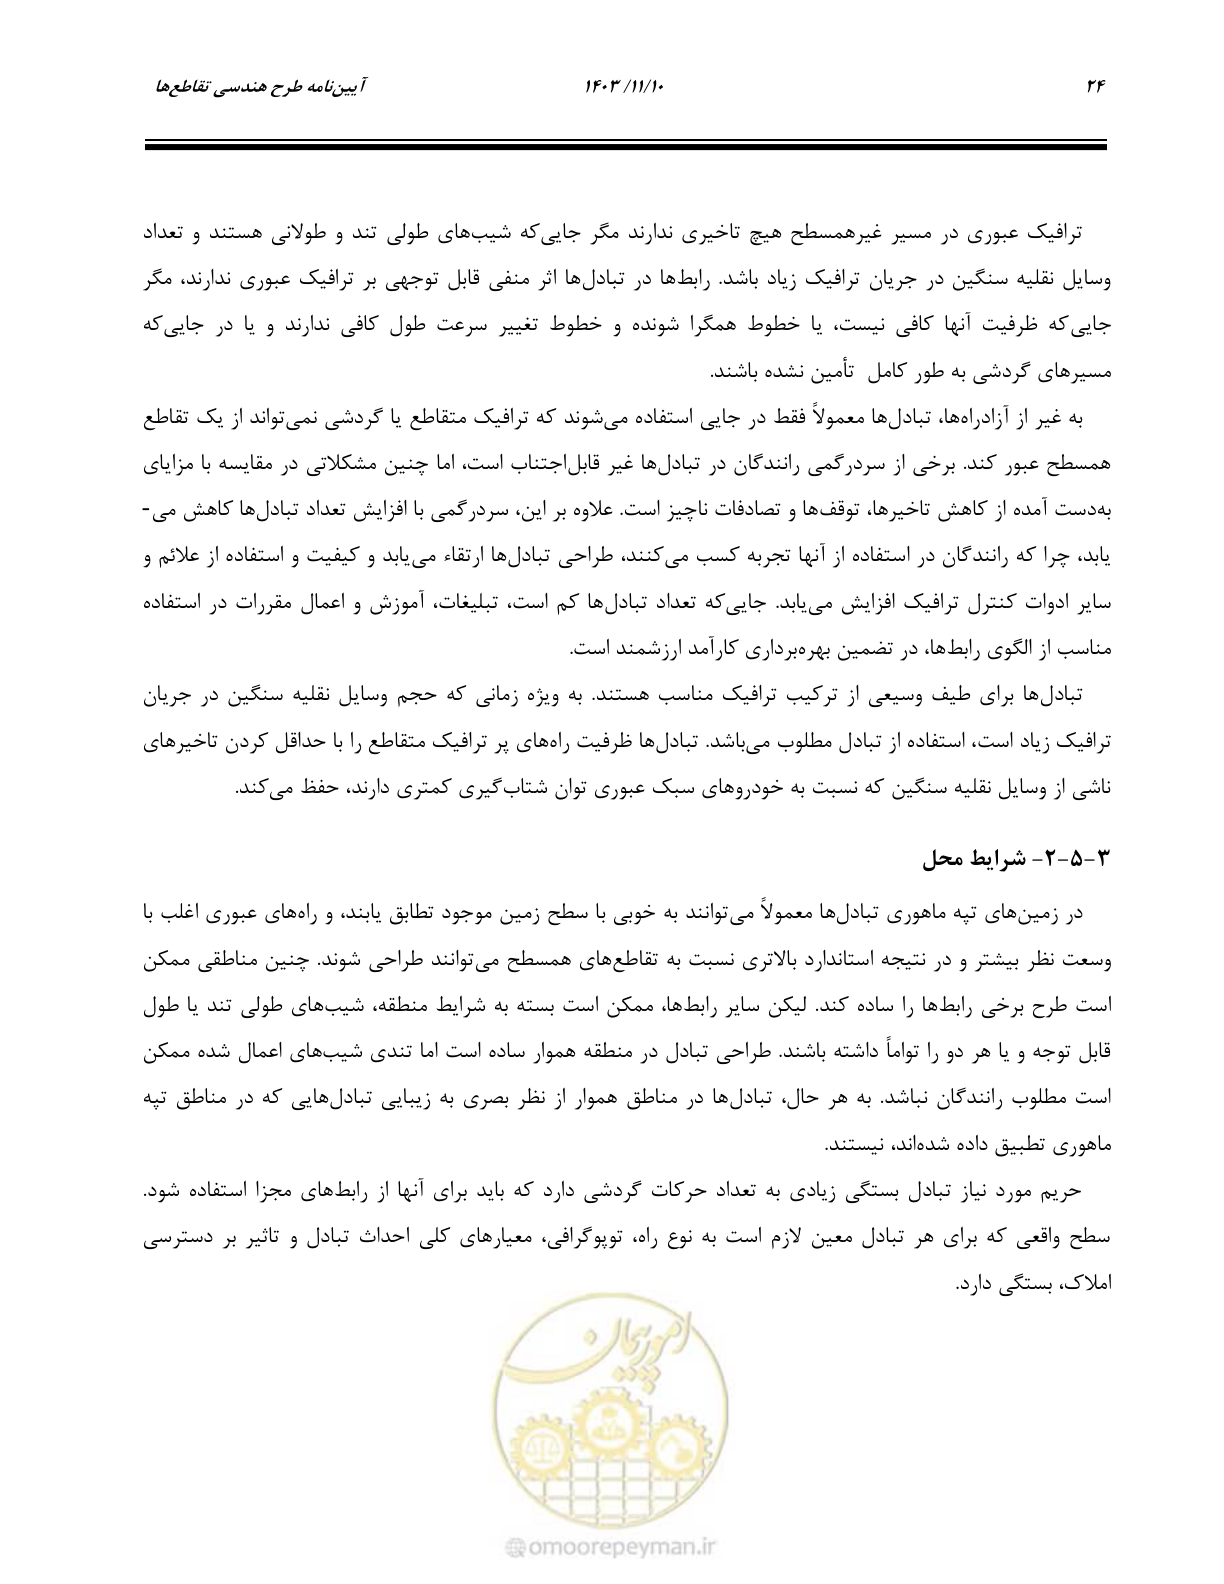 ۲۴ ۱۴۰۳/۱۱/۱۰ آیین‌نامه طرح هندسی تقاطع‌ها
ترافیک عبوری در مسیر غیرهمسطح هیچ تاخیری ندارند مگر جایی‌که شیب‌های طولی تند و طولانی هستند و تعداد
وسایل نقلیه سنگین در جریان ترافیک زیاد باشد. رابط‌ها در تبادل‌ها اثر منفی قابل توجهی بر ترافیک عبوری ندارند، مگر
جایی‌که ظرفیت آنها کافی نیست، یا خطوط همگرا شونده و خطوط تغییر سرعت طول کافی ندارند و یا در جایی‌که
مسیرهای گردشی به طور کامل تأمین نشده باشند.
به غیر از آزادراه‌ها، تبادل‌ها معمولاً فقط در جایی استفاده می‌شوند که ترافیک متقاطع یا گردشی نمی‌تواند از یک تقاطع
همسطح عبور کند. برخی از سردرگمی رانندگان در تبادل‌ها غیر قابل‌اجتناب است، اما چنین مشکلاتی در مقایسه با مزایای
به‌دست آمده از کاهش تاخیرها، توقف‌ها و تصادفات ناچیز است. علاوه بر این، سردرگمی با افزایش تعداد تبادل‌ها کاهش می-
یابد، چرا که رانندگان در استفاده از آنها تجربه کسب می‌کنند، طراحی تبادل‌ها ارتقاء می‌یابد و کیفیت و استفاده از علائم و
سایر ادوات کنترل ترافیک افزایش می‌یابد. جایی‌که تعداد تبادل‌ها کم است، تبلیغات، آموزش و اعمال مقررات در استفاده
مناسب از الگوی رابط‌ها، در تضمین بهره‌برداری کارآمد ارزشمند است.
تبادل‌ها برای طیف وسیعی از ترکیب ترافیک مناسب هستند. به ویژه زمانی که حجم وسایل نقلیه سنگین در جریان
ترافیک زیاد است، استفاده از تبادل مطلوب می‌باشد. تبادل‌ها ظرفیت راه‌های پر ترافیک متقاطع را با حداقل کردن تاخیرهای
ناشی از وسایل نقلیه سنگین که نسبت به خودروهای سبک عبوری توان شتاب‌گیری کمتری دارند، حفظ می‌کند.
۲-۵-۳- شرایط محل
در زمین‌های تپه ماهوری تبادل‌ها معمولاً می‌توانند به خوبی با سطح زمین موجود تطابق یابند، و راه‌های عبوری اغلب با
وسعت نظر بیشتر و در نتیجه استاندارد بالاتری نسبت به تقاطع‌های همسطح می‌توانند طراحی شوند. چنین مناطقی ممکن
است طرح برخی رابط‌ها را ساده کند. لیکن سایر رابط‌ها، ممکن است بسته به شرایط منطقه، شیب‌های طولی تند یا طول
قابل توجه و یا هر دو را تواماً داشته باشند. طراحی تبادل در منطقه هموار ساده است اما تندی شیب‌های اعمال شده ممکن
است مطلوب رانندگان نباشد. به هر حال، تبادل‌ها در مناطق هموار از نظر بصری به زیبایی تبادل‌هایی که در مناطق تپه
ماهوری تطبیق داده شده‌اند، نیستند.
حریم مورد نیاز تبادل بستگی زیادی به تعداد حرکات گردشی دارد که باید برای آنها از رابط‌های مجزا استفاده شود.
سطح واقعی که برای هر تبادل معین لازم است به نوع راه، توپوگرافی، معیارهای کلی احداث تبادل و تاثیر بر دسترسی
املاک، بستگی دارد.
امور پیمان
@omoorepeyman.ir